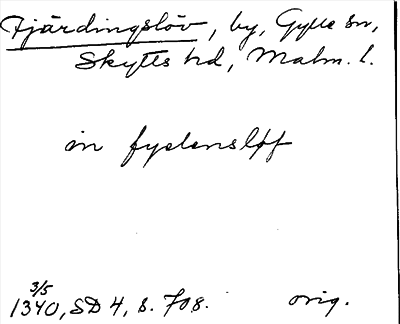 Fjärdingslöv, by, Gylle sn,
Skytts hd, Malm. l.
in fyelensløf
3/5
1340, SD 4, s. 708. orig.